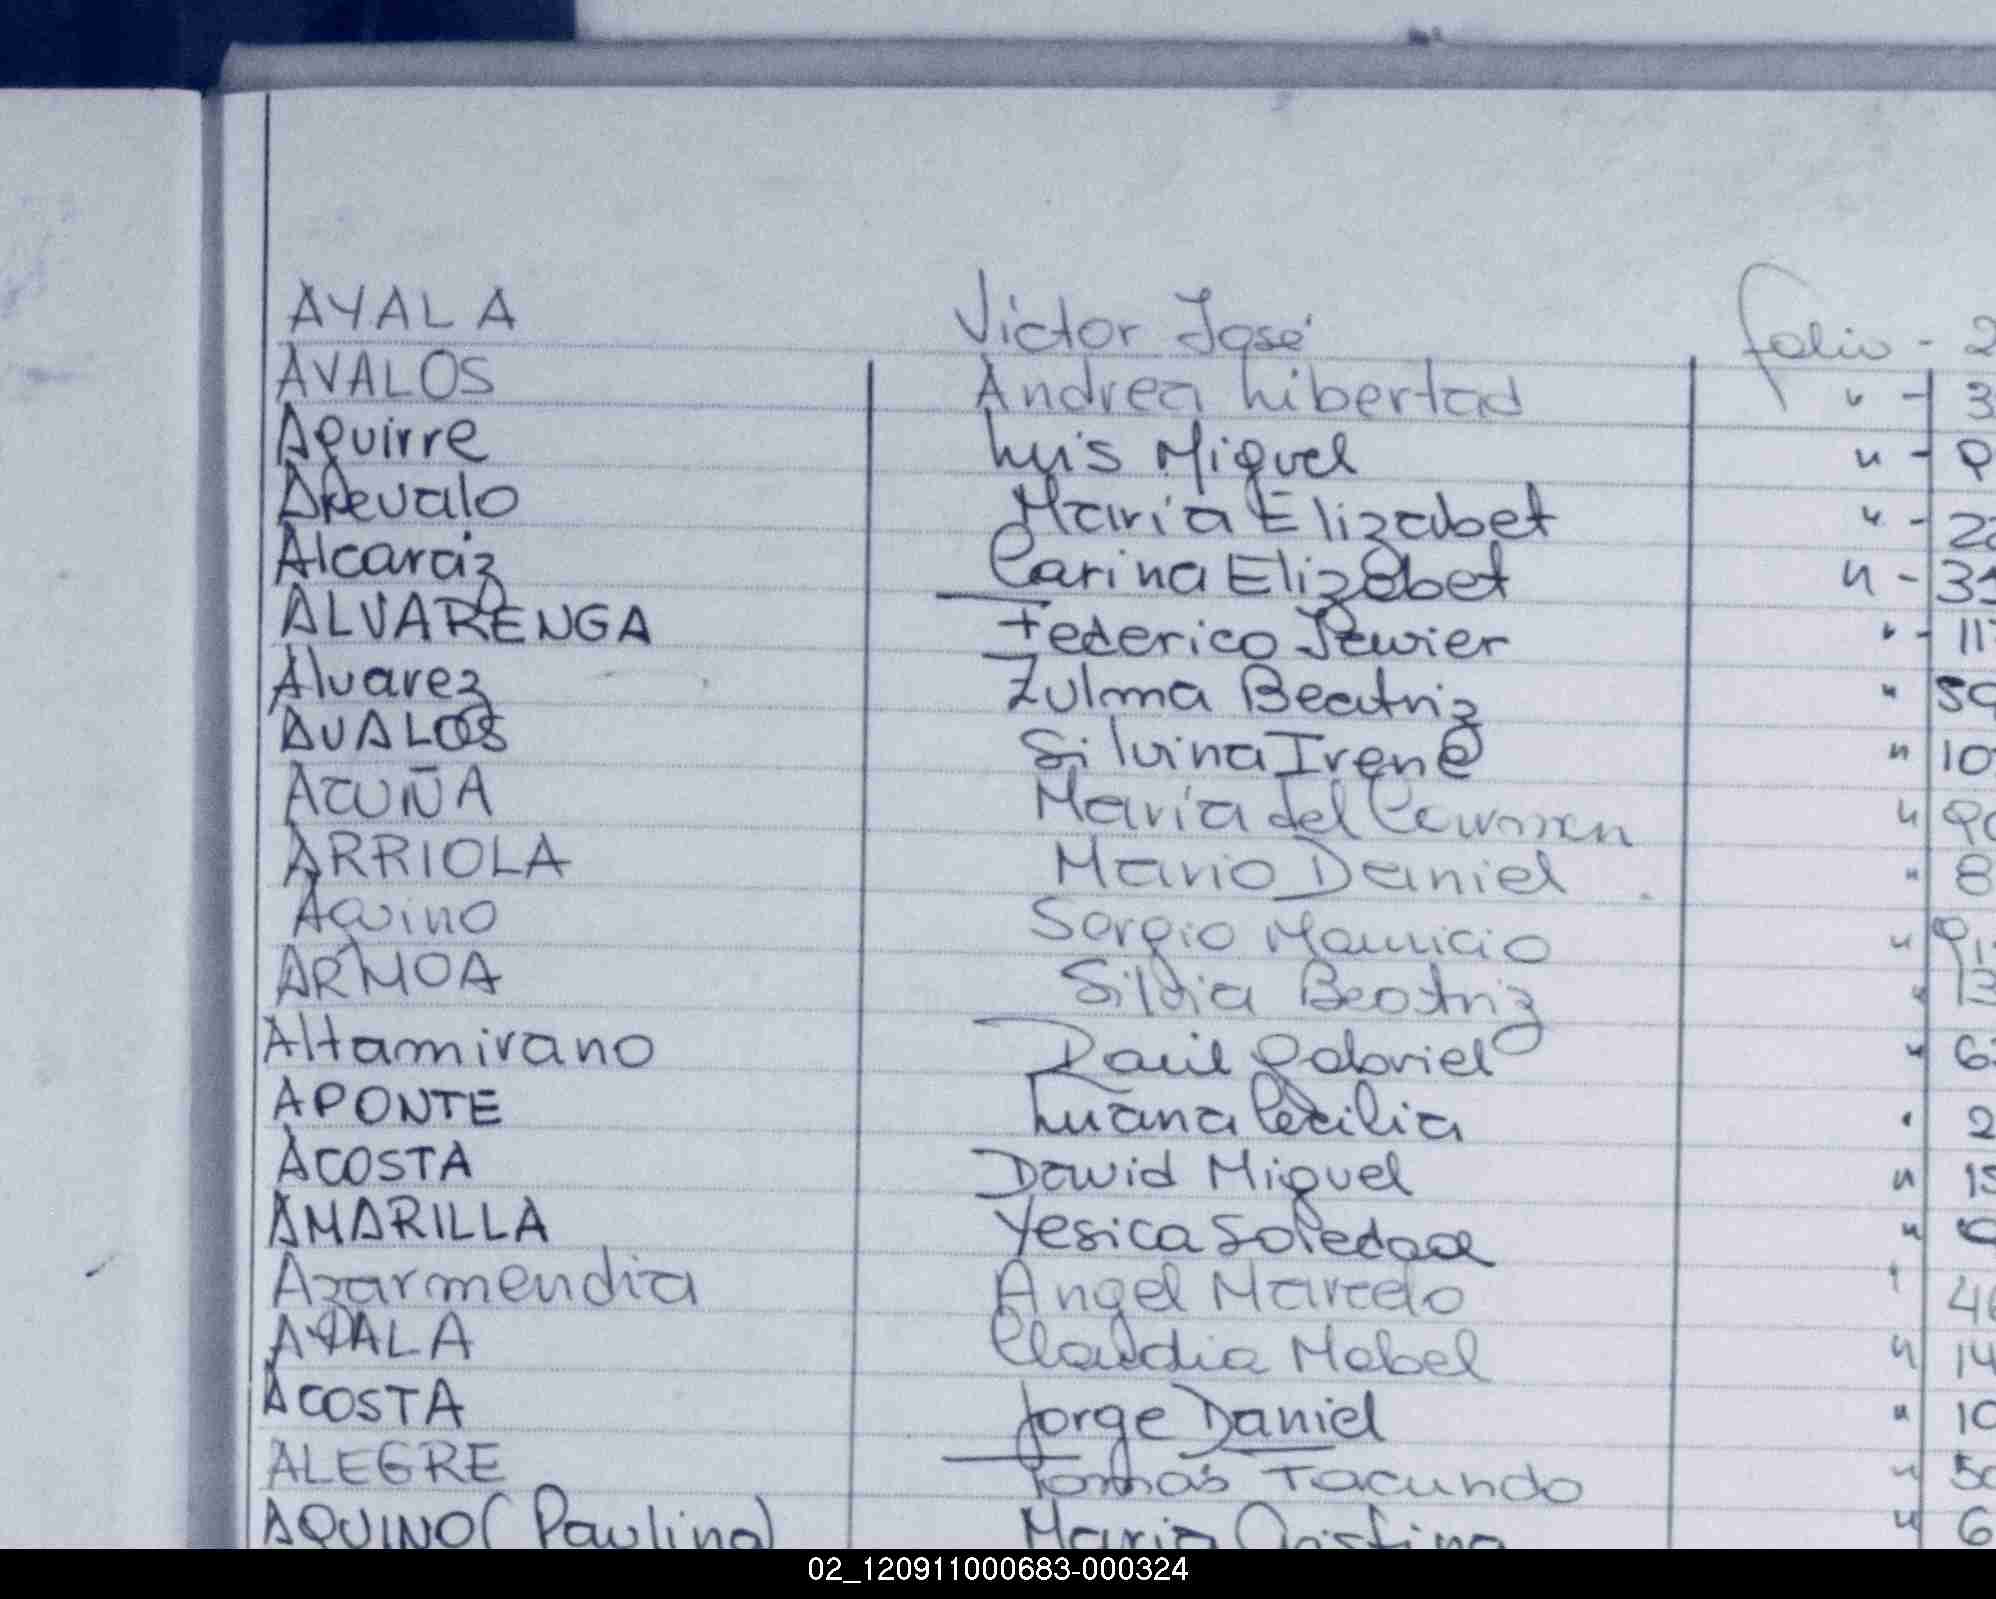 AYALA Victor José folio - 2
AVALOS Andrea Libertad " - 3
Aguirre Luis Miguel " - 9
Arevalo María Elizabet " - 22
Alcaraz Carina Elizabet " - 31
ALVARENGA Federico Javier " - 117
Alvarez Zulma Beatriz " 59
AVALOS Silvina Irene " 10
ACUÑA María del Carmen " 90
ARRIOLA Mario Daniel " 8
Aquino Sergio Mauricio " 91
ARMOA Silvia Beatriz " 13
Altamirano Raúl Gabriel " 6
APONTE Luana Cecilia " 2
ACOSTA David Miguel " 15
AMARILLA Yesica Soledad "
Azarmendia Angel Marcelo " 46
AYALA Claudia Mabel " 14
ACOSTA Jorge Daniel " 10
ALEGRE Tomás Facundo " 50
AQUINO (Paulino) María Cristina " 6
02_120911000683-000324